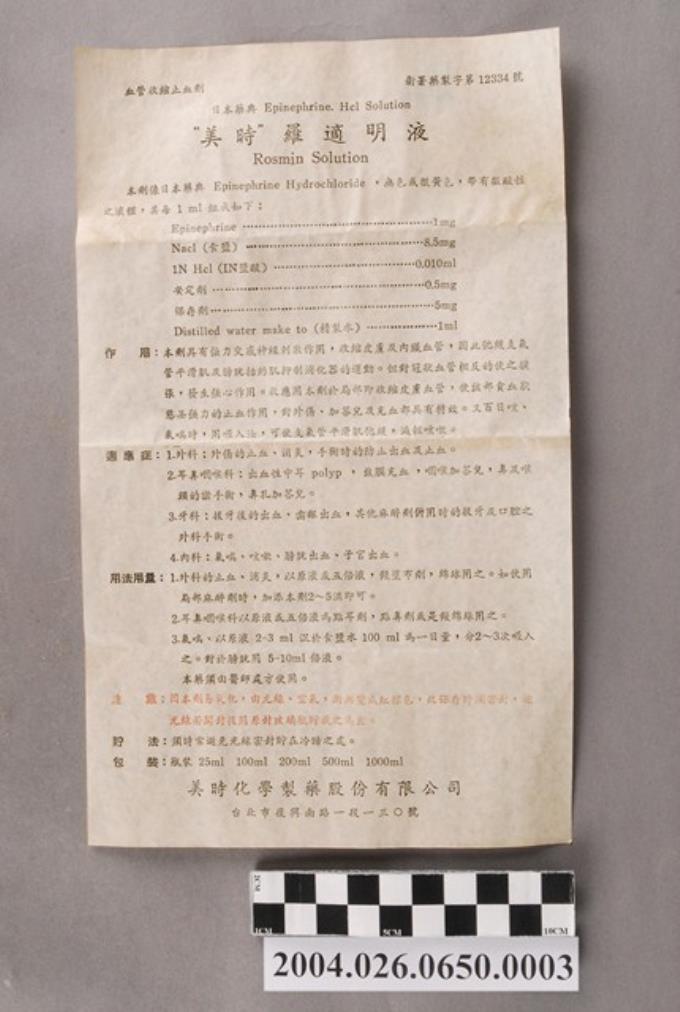 血管收縮止血劑
衛署藥製字第 12334 號
日本藥典 Epinephrine. Hcl Solution
"美時" 羅適明液
Rosmin Solution
本劑係日本藥典 Epinephrine Hydrochloride ，無色或微黃色，帶有微酸性
之液體，其每 1 ml 組成如下：
Epinephrine ⋯⋯⋯⋯⋯⋯⋯⋯⋯⋯1mg
Nacl（食鹽）⋯⋯⋯⋯⋯⋯⋯⋯⋯⋯8.5mg
1N Hcl（IN鹽酸）⋯⋯⋯⋯⋯⋯⋯⋯0.010ml
安定劑 ⋯⋯⋯⋯⋯⋯⋯⋯⋯⋯⋯⋯0.5mg
保存劑⋯⋯⋯⋯⋯⋯⋯⋯⋯⋯⋯⋯5mg
Distilled water make to（精製水）⋯⋯⋯⋯1ml
作 用：本劑具有強力交感神經刺激作用，收縮皮膚及內臟血管，因此弛緩支氣
管平滑肌及膀胱括約肌抑制消化器的運動。但對冠狀血管相反的使之擴
張，發生強心作用。故應用本劑於局部即收縮皮膚血管，使該部貧血狀
態呈強力的止血作用，對外傷、加答兒及充血都具有特效。又百日咳、
氣喘時，用吸入法，可使支氣管平滑肌弛緩，減輕咳嗽。
適應症：1.外科：外傷的止血、消炎，手術時的防止出血及止血。
2.耳鼻咽喉科：出血性中耳 polyp ，鼓膜充血，咽喉加答兒，鼻及喉
頭的小手術，鼻孔加答兒。
3.牙科：拔牙後的出血、齒齦出血，其他麻醉劑併用時的拔牙及口腔之
外科手術。
4.內科：氣喘、咳嗽、膀胱出血、子宮出血。
用法用量：1.外科的止血、消炎，以原液或五倍液，假塗布劑，綿球用之。如使用
局部麻醉劑時，加添本劑2～5滴即可。
2.耳鼻咽喉科以原液或五倍液為點耳劑，點鼻劑或是假綿球用之。
3.氣喘、以原液 2-3 ml 混於食鹽水 100 ml 為一日量，分2～3次吸入
之。對於膀胱用 5-10ml 倍液。
本藥須由醫師處方使用。
注 意：因本劑易氧化，由光線、空氣，漸漸變成紅棕色，故保存時須密封，避
光線
貯 法：須時常避免光線密封貯在冷暗之處。
包 裝：瓶裝 25ml 100ml 200ml 500ml 1000ml
美時化學製藥股份有限公司
台北市復興南路一段一三〇號
2CM
1CM
5CM
10CM
2004.026.0650.0003